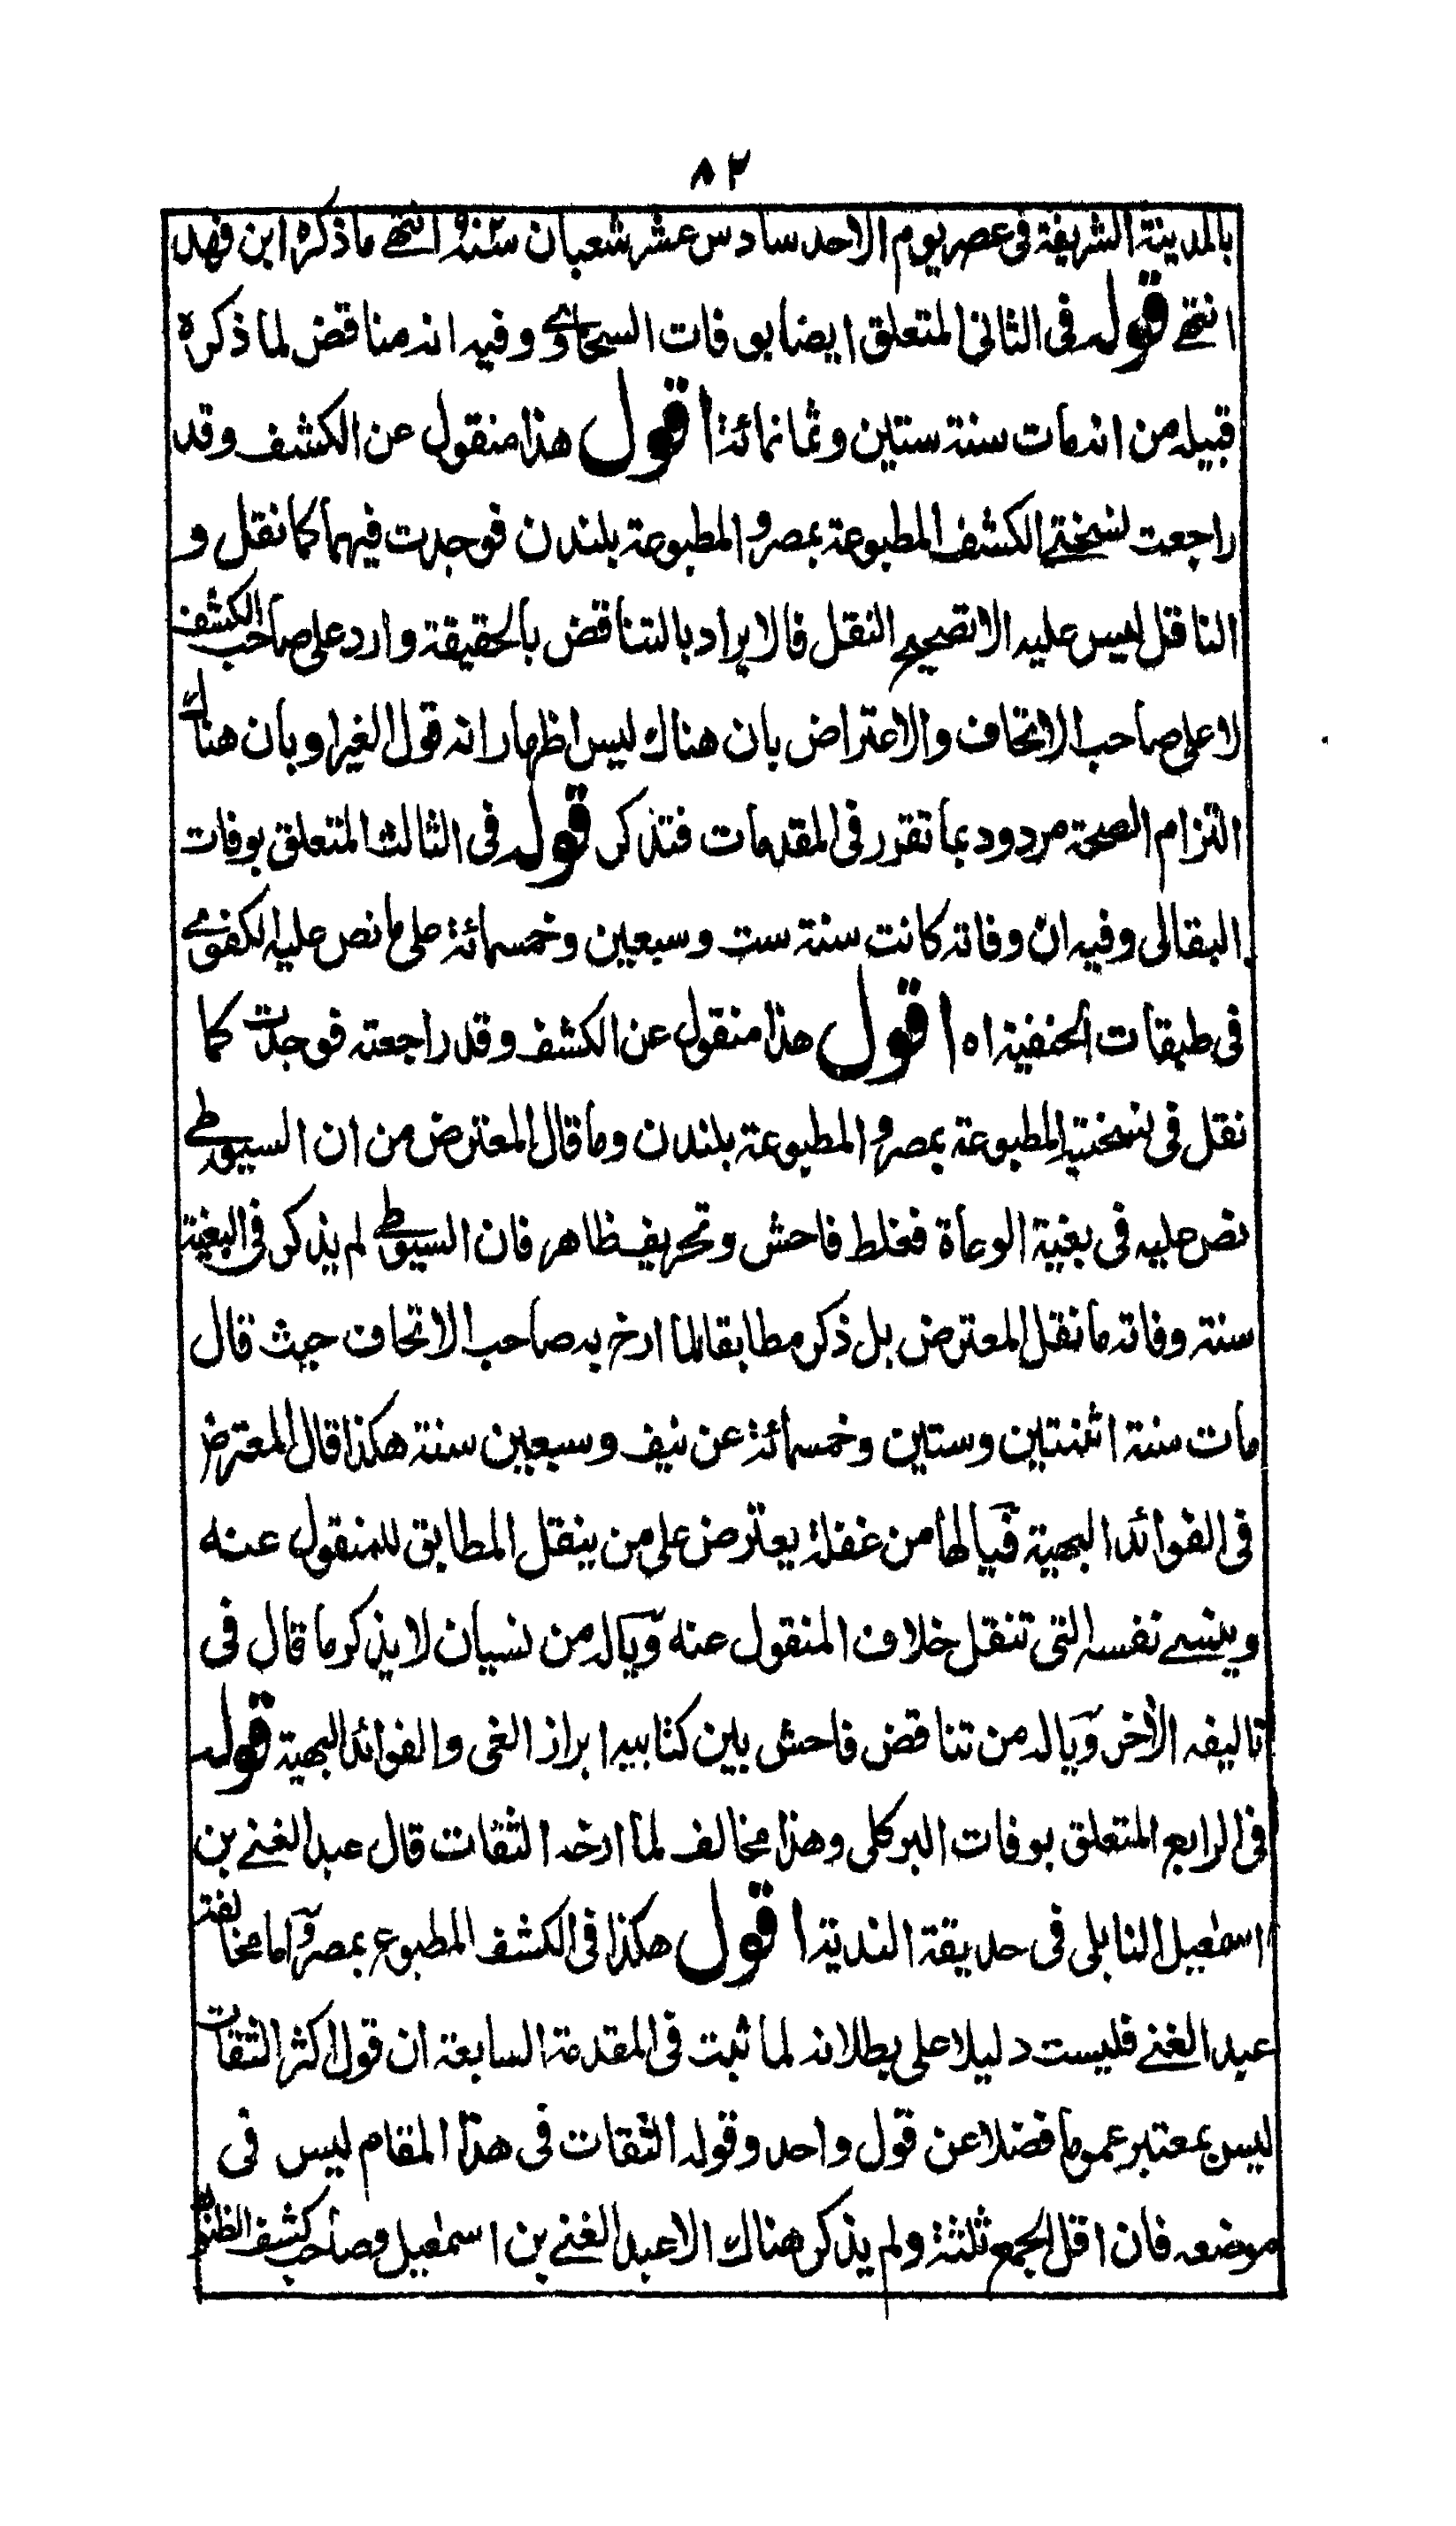 ٨٢
بالمدينة الشريفة فى عصر يوم الاحد سادس عشر شعبان سنة انتهے ما ذكره ابن فهد
انتهے قوله فى الثانى المتعلق ايضا بوفات السخاوے وفيه انه مناقض لما ذكره
قبيله من انه مات سنة ستين وثمانمائة اقول هذا منقول عن الكشف وقد
راجعت نسختے الكشف المطبوعة بمصر والمطبوعة بلندن فوجدت فيهما كما نقل و
الناقل ليس عليه الا تصحيح النقل فالايراد بالتناقض بالحقيقة وارد على صاحب الكشف
لا على صاحب الاتحاف والاعتراض بان هناك ليس اظهار انه قول الغير او بان هناك
التزام الصحة مردود بما تقرر فى المقدمات فتذكر قوله فى الثالث المتعلق بوفات
البقالى وفيه ان وفاته كانت سنة ست وسبعين وخمسمائة على ما نص عليه الكفوے
فى طبقات الحنفية اه اقول هذا منقول عن الكشف وقد راجعته فوجدت كما
نقل فى نسختيه المطبوعة بمصر و المطبوعة بلندن وما قال المعترض من ان السيوطے
نص عليه فى بغية الوعاة فغلط فاحش وتحريف ظاهر فان السيوطے لم يذكر فى البغية
سنة وفاته ما نقل المعترض بل ذكر مطابقا لما ارخ به صاحب الاتحاف حيث قال
مات سنة اثنتين وستين وخمسمائة عن نيف وسبعين سنة هكذا قال المعترض
فى الفوائد البهية فيا لها من غفلة يعترض على من ينقل المطابق للمنقول عنه
وينسے نفسه التى تنقل خلاف المنقول عنه ويا له من نسيان لا يذكر ما قال فى
تاليفه الآخر ويا له من تناقض فاحش بين كتابيه ابراز الغى والفوائد البهية قوله
فى الرابع المتعلق بوفات البركلى وهذا مخالف لما ارخه الثقات قال عبد الغنے بن
اسمعيل النابلى فى حديقة الندية اقول هكذا فى الكشف المطبوع بمصر وآما مخالفة
عبد الغنے فليست دليلا على بطلانه لما ثبت فى المقدمة السابعة ان قول اكثر الثقات
ليس بمعتبر عموما فضلا عن قول واحد وقوله الثقات فى هذا المقام ليس فى
موضعه فان اقل الجمع ثلثة ولم يذكر هناك الا عبد الغنے بن اسمعيل وصاحب كشف الظنون